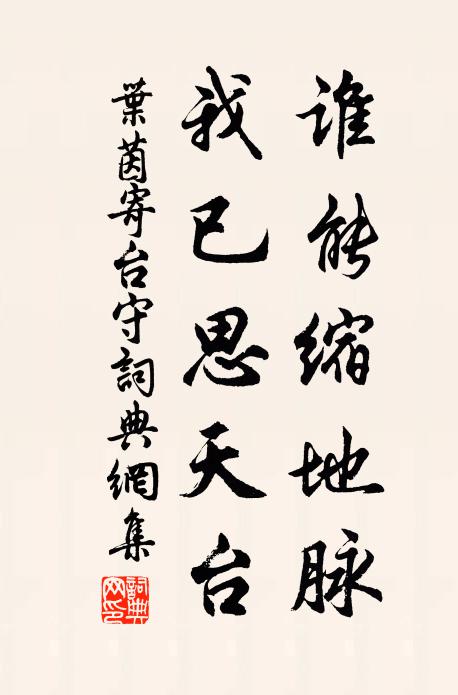 谁能缩地脉
我已思天台
葉茵寄台守詞典網集
詞典網印